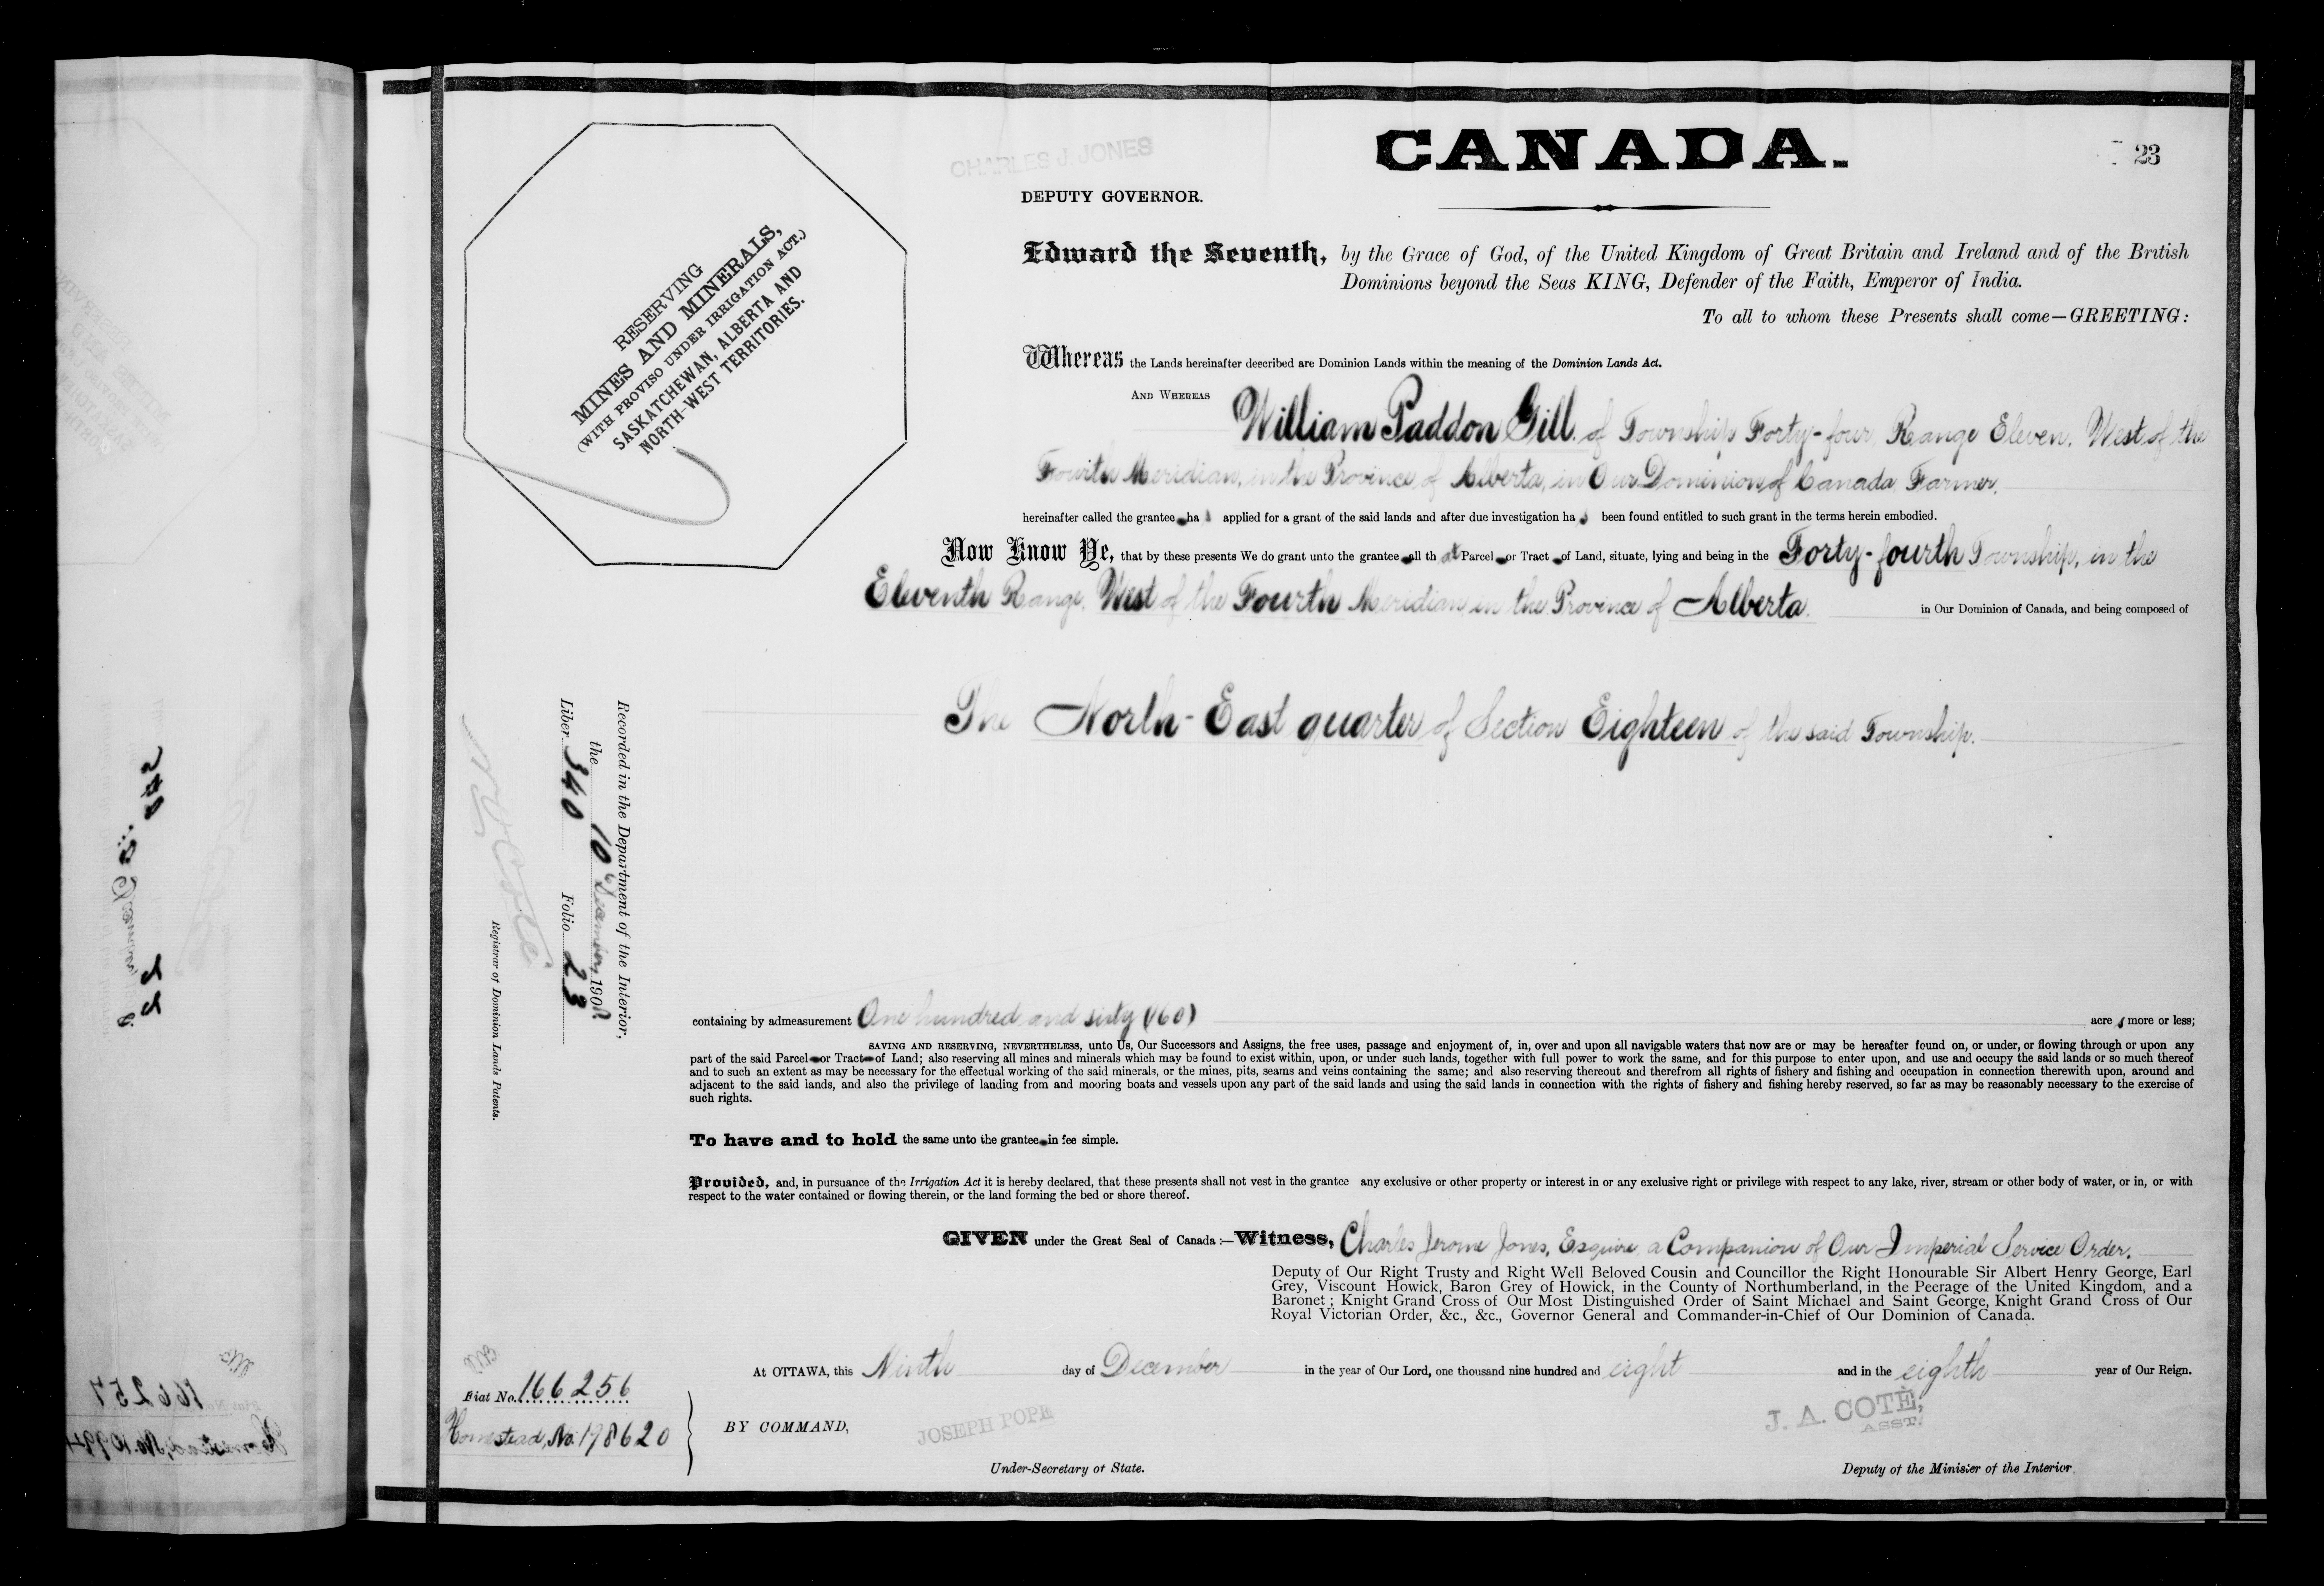 CANADA.
23
CHARLES J. JONES
DEPUTY GOVERNOR.
RESERVING
MINES AND MINERALS,
(WITH PROVISO UNDER IRRIGATION ACT.)
SASKATCHEWAN, ALBERTA AND
NORTH-WEST TERRITORIES.
Edward the Seventh, by the Grace of God, of the United Kingdom of Great Britain and Ireland and of the British
Dominions beyond the Seas KING, Defender of the Faith, Emperor of India.
To all to whom these Presents shall come—GREETING:
Whereas the Lands hereinafter described are Dominion Lands within the meaning of the Dominion Lands Act.
AND WHEREAS William Paddon Gill, of Township Forty-four, Range Eleven, West of the
Fourth Meridian, in the Province of Alberta, in Our Dominion of Canada, Farmer,
hereinafter called the grantee has applied for a grant of the said lands and after due investigation has been found entitled to such grant in the terms herein embodied.
Now Know Ye, that by these presents We do grant unto the grantee all that Parcel or Tract of Land, situate, lying and being in the Forty-fourth Township, in the
Eleventh Range, West of the Fourth Meridian, in the Province of Alberta, in Our Dominion of Canada, and being composed of
The North-East quarter of Section Eighteen of the said Township.
Recorded in the Department of the Interior,
the 10 December, 1908
Liber 340 Folio 23
N O Coté
Registrar of Dominion Lands Patents.
containing by admeasurement One hundred and sixty (160) acres more or less;
SAVING AND RESERVING, NEVERTHELESS, unto Us, Our Successors and Assigns, the free uses, passage and enjoyment of, in, over and upon all navigable waters that now are or may be hereafter found on, or under, or flowing through or upon any
part of the said Parcel or Tract of Land; also reserving all mines and minerals which may be found to exist within, upon, or under such lands, together with full power to work the same, and for this purpose to enter upon, and use and occupy the said lands or so much thereof
and to such an extent as may be necessary for the effectual working of the said minerals, or the mines, pits, seams and veins containing the same; and also reserving thereout and therefrom all rights of fishery and fishing and occupation in connection therewith upon, around and
adjacent to the said lands, and also the privilege of landing from and mooring boats and vessels upon any part of the said lands and using the said lands in connection with the rights of fishery and fishing hereby reserved, so far as may be reasonably necessary to the exercise of
such rights.
To have and to hold the same unto the grantee in fee simple.
Provided, and, in pursuance of the Irrigation Act it is hereby declared, that these presents shall not vest in the grantee any exclusive or other property or interest in or any exclusive right or privilege with respect to any lake, river, stream or other body of water, or in, or with
respect to the water contained or flowing therein, or the land forming the bed or shore thereof.
GIVEN under the Great Seal of Canada:—Witness, Charles Jerome Jones, Esquire, a Companion of Our Imperial Service Order,
Deputy of Our Right Trusty and Right Well Beloved Cousin and Councillor the Right Honourable Sir Albert Henry George, Earl
Grey, Viscount Howick, Baron Grey of Howick, in the County of Northumberland, in the Peerage of the United Kingdom, and a
Baronet; Knight Grand Cross of Our Most Distinguished Order of Saint Michael and Saint George, Knight Grand Cross of Our
Royal Victorian Order, &c., &c., Governor General and Commander-in-Chief of Our Dominion of Canada.
At OTTAWA, this Ninth day of December in the year of Our Lord, one thousand nine hundred and eight and in the eighth year of Our Reign.
Fiat No. 166256
Homestead, No. 198620
BY COMMAND,
JOSEPH POPE
Under-Secretary of State.
J. A. COTÉ,
ASST.
Deputy of the Minister of the Interior.